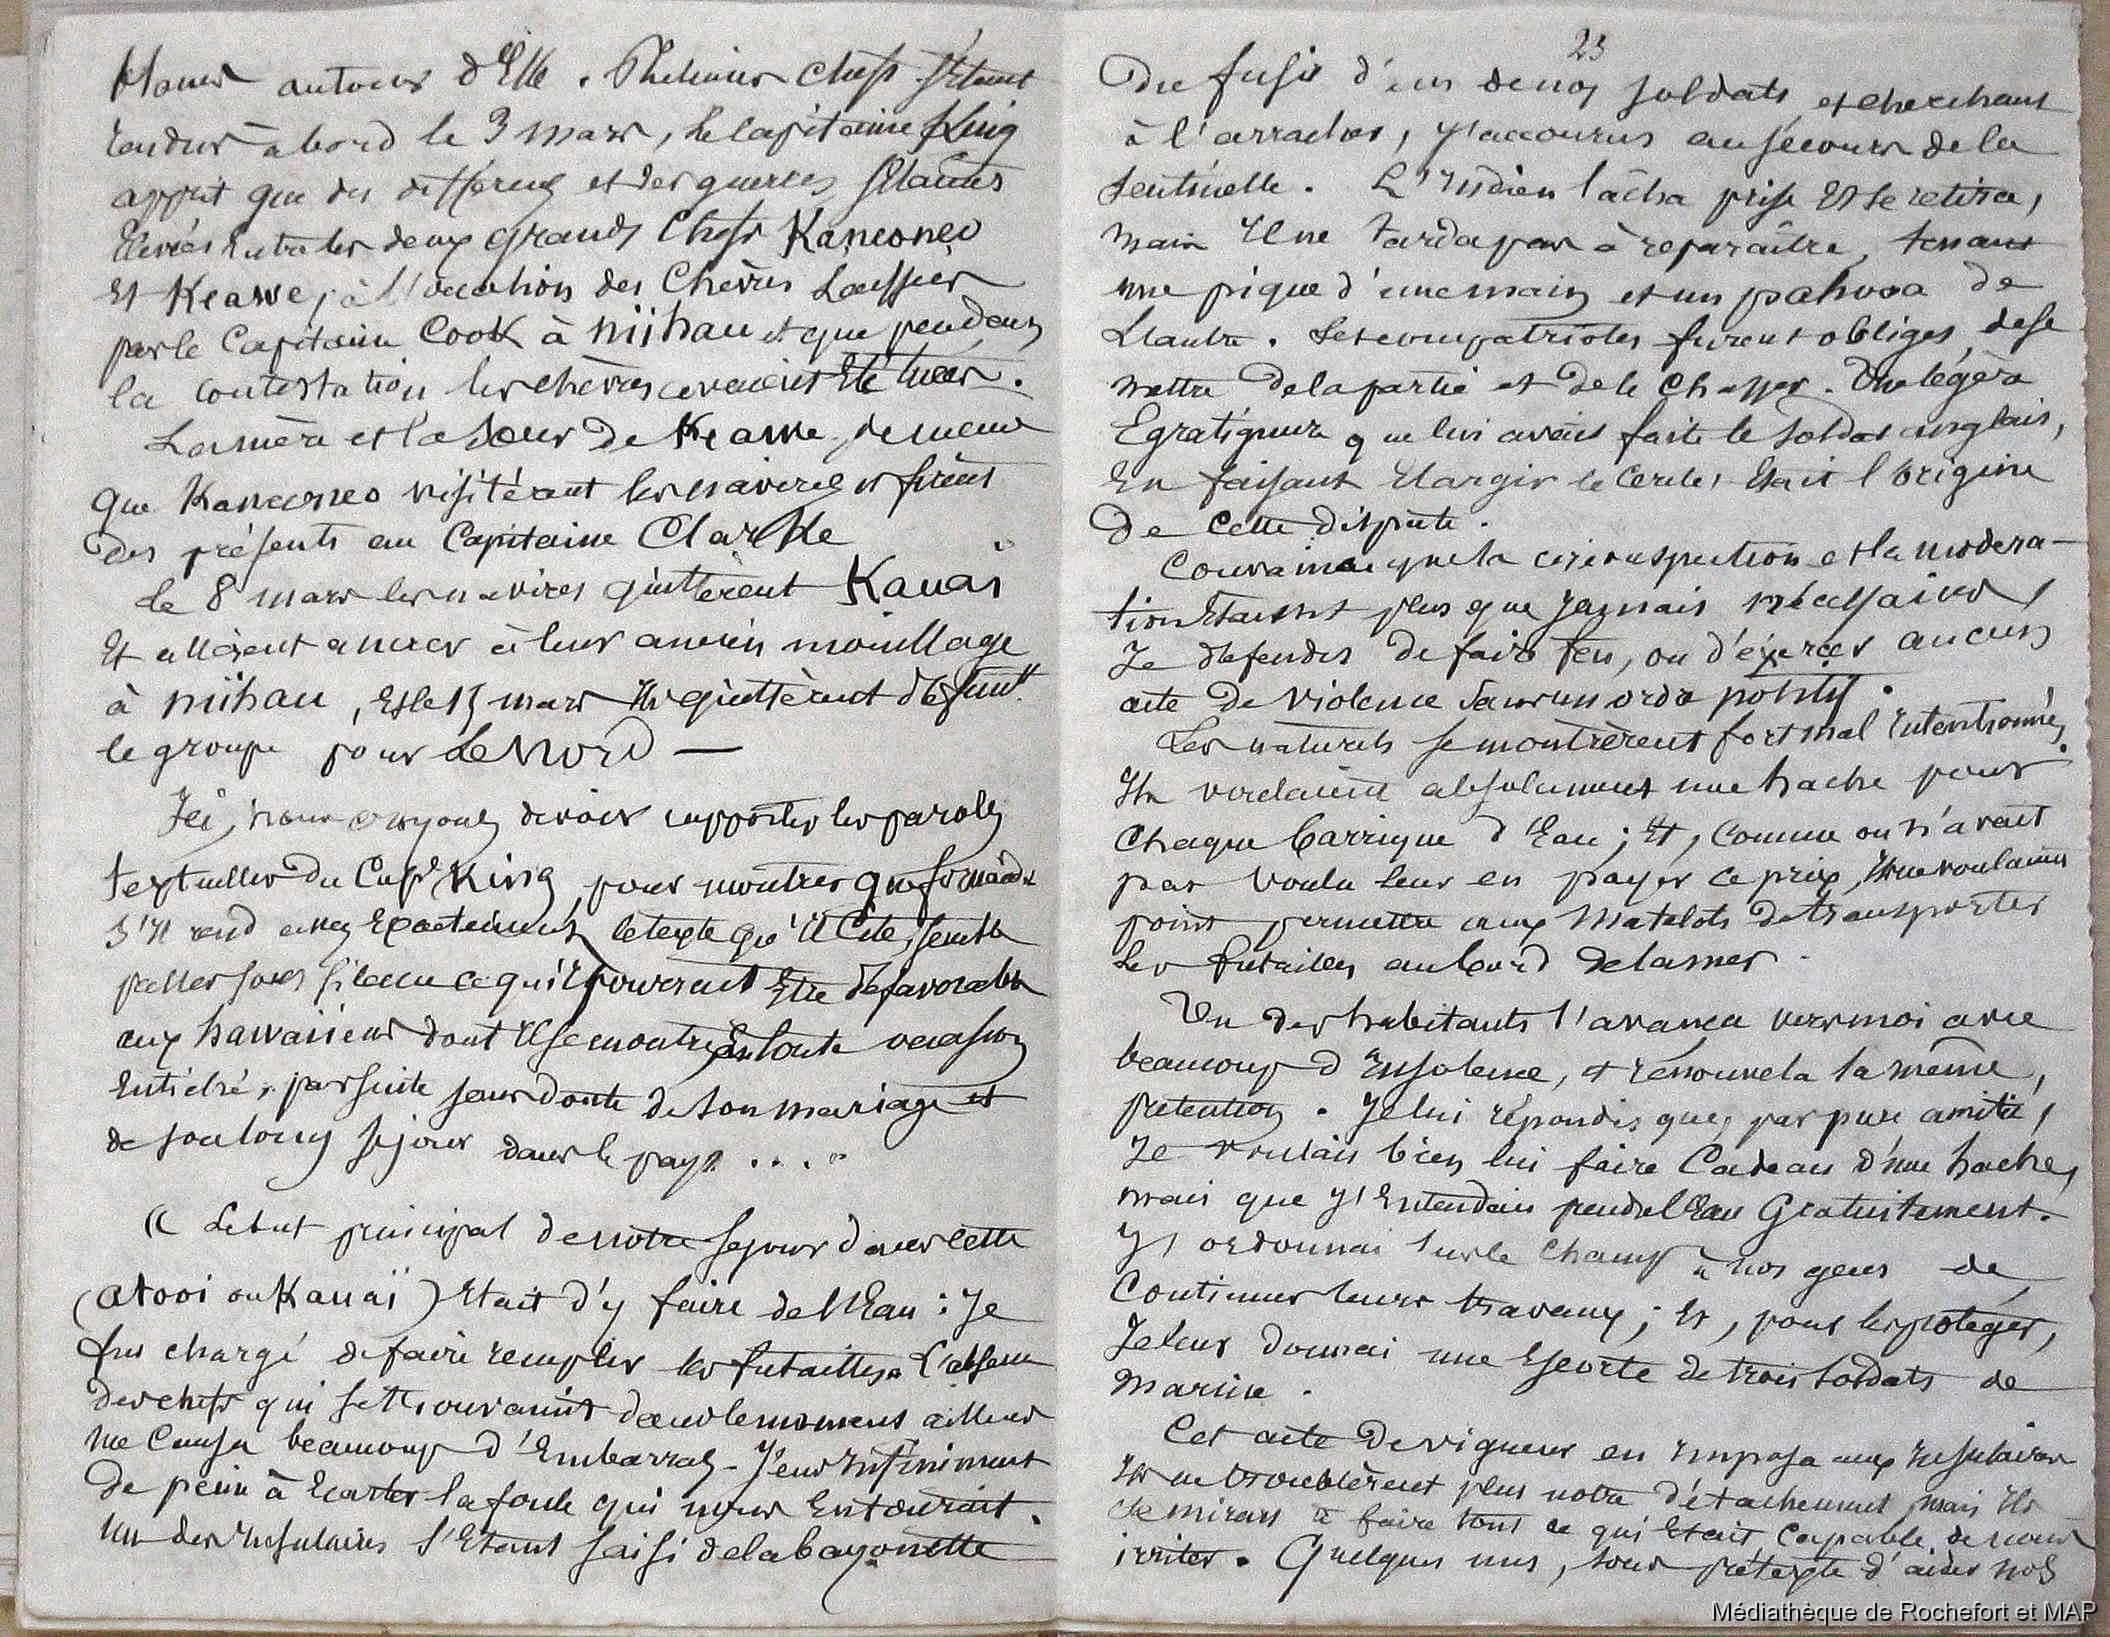 autour d'Elle. Plusieurs chefs s'étant
rendus à bord le 3 mars, le capitaine King
apprit que des différens et des guerres s'étaient
élevées entre les deux grands chefs Kaneoneo
Et Keawe, à l'occasion des chèvres laissées
par le Capitaine Cook à Niihau et que pendant
la contestation les chèvres avaient Eté tuées.
La mère et la soeur de Keawe, de même
que Kaneoneo visitèrent les navires et firent
des présents au Capitaine Clarke
Le 8 mars les navires quittèrent Kauaï
Et allèrent ancrer à leur ancien mouillage
à Niihau, Et le 15 mars Ils quittèrent définit.t
le groupe pour Le Nord —
Ici, nous croyons devoir rapporter les paroles
textuelles du Cap.e King, pour montrer que
s'Il rend assez Exactement le texte qu'Il Cite, semble
passer sous silence ce qui pourrait Etre défavorable
aux hawaiiens dont Il se montre En toute occasion
Entiché, par suite sans doute de son mariage et
de son long séjour dans le pays ....
« Le but principal de notre séjour dans cette
(Atooi ou Kauaï) Etait d'y faire de l'Eau : Je
fus chargé de faire remplir les futailles. L'absence
des chefs qui se trouvaient dans le moment ailleurs
me Causa beaucoup d'Embarras - J'eus Infiniment
de peine à Ecarter la foule qui nous Entourait.
Un des Insulaires s'Etant saisi de la bayonette
23
Du fusil d'un de nos soldats, et cherchant
à l'arracher, j'accourus au secours de la
sentinelle. L'Indien lâcha prise Et se retira,
mais Il ne tarda pas à reparaître, tenant
une pique d'une main et un pahooa de
L'autre. Ses compatriotes furent obligés de se
mettre de la partie et de le Chasser. Une légère
Egratignure que lui avait faite le soldat anglais,
En faisant Elargir le Cercle, Etait l'origine
De Cette dispute.
Convaincu que la circonspection et la modéra-
tion Etaient plus que jamais nécessaires,
Je défendis de faire feu, ou d'éxercer aucun
acte De Violence sans un ordre positif.
Les naturels se montrèrent fort mal Intentionnés.
Ils voulaient absolument une hache pour
Chaque barrique d'Eau ; Et, Comme on n'avait
pas Voulu leur en payer ce prix, Ils ne voulaient
point permettre aux Matelots de transporter
Les futailles au bord de la mer.
Un des habitants s'avança vers moi avec
beaucoup d'Insolence, et renouvela la même
prétention. Je lui répondis que, par pure amitié,
Je voulais bien lui faire Cadeau d'une hache,
mais que j'Entendais prendre l'Eau Gratuitement.
J'ordonnai sur le Champ à nos gens de
Continuer leurs travaux ; Et, pour les protéger,
Je leur donnai une Escorte de trois soldats de
marine.
Cet acte de vigueur en Imposa aux Insulaires
Ils ne troublèrent plus notre détachement, mais Ils
se mirent à faire tout ce qui Etait Capable de nous
irriter. Quelques uns, sous prétexte d'aider nos
Médiathèque de Rochefort et MAP